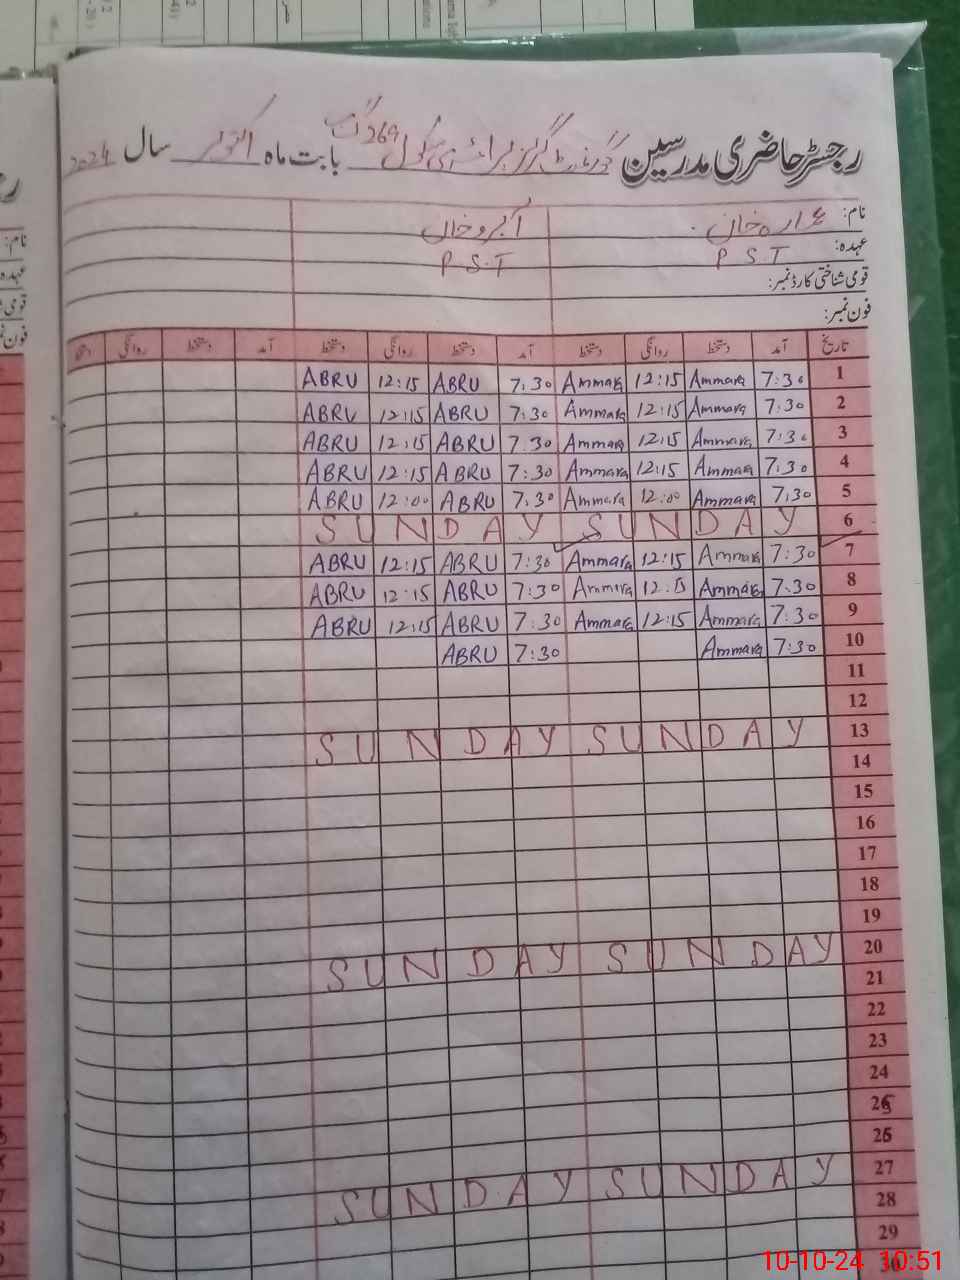 رجسٹر حاضری مدرسین گورنمنٹ گرلز پرائمری سکول 269 گ ب بابت ماہ اکتوبر سال 2024
نام: عمارہ خان آبرو خان
عہدہ: P.S.T P.S.T
قومی شناختی کارڈ نمبر:
فون نمبر:
تاریخ آمد دستخط روانگی دستخط آمد دستخط روانگی دستخط آمد دستخط روانگی دستخط
1 7:30 Ammara 12:15 Ammara 7:30 ABRU 12:15 ABRU
2 7:30 Ammara 12:15 Ammara 7:30 ABRU 12:15 ABRU
3 7:30 Ammara 12:15 Ammara 7:30 ABRU 12:15 ABRU
4 7:30 Ammara 12:15 Ammara 7:30 ABRU 12:15 ABRU
5 7:30 Ammara 12:00 Ammara 7:30 ABRU 12:00 ABRU
6 SUNDAY SUNDAY
7 7:30 Ammara 12:15 Ammara 7:30 ABRU 12:15 ABRU
8 7:30 Ammara 12:15 Ammara 7:30 ABRU 12:15 ABRU
9 7:30 Ammara 12:15 Ammara 7:30 ABRU 12:15 ABRU
10 7:30 Ammara 7:30 ABRU
11
12
13 SUNDAY SUNDAY
14
15
16
17
18
19
20 SUNDAY SUNDAY
21
22
23
24
25
26
27 SUNDAY SUNDAY
28
29
30
10-10-24 10:51